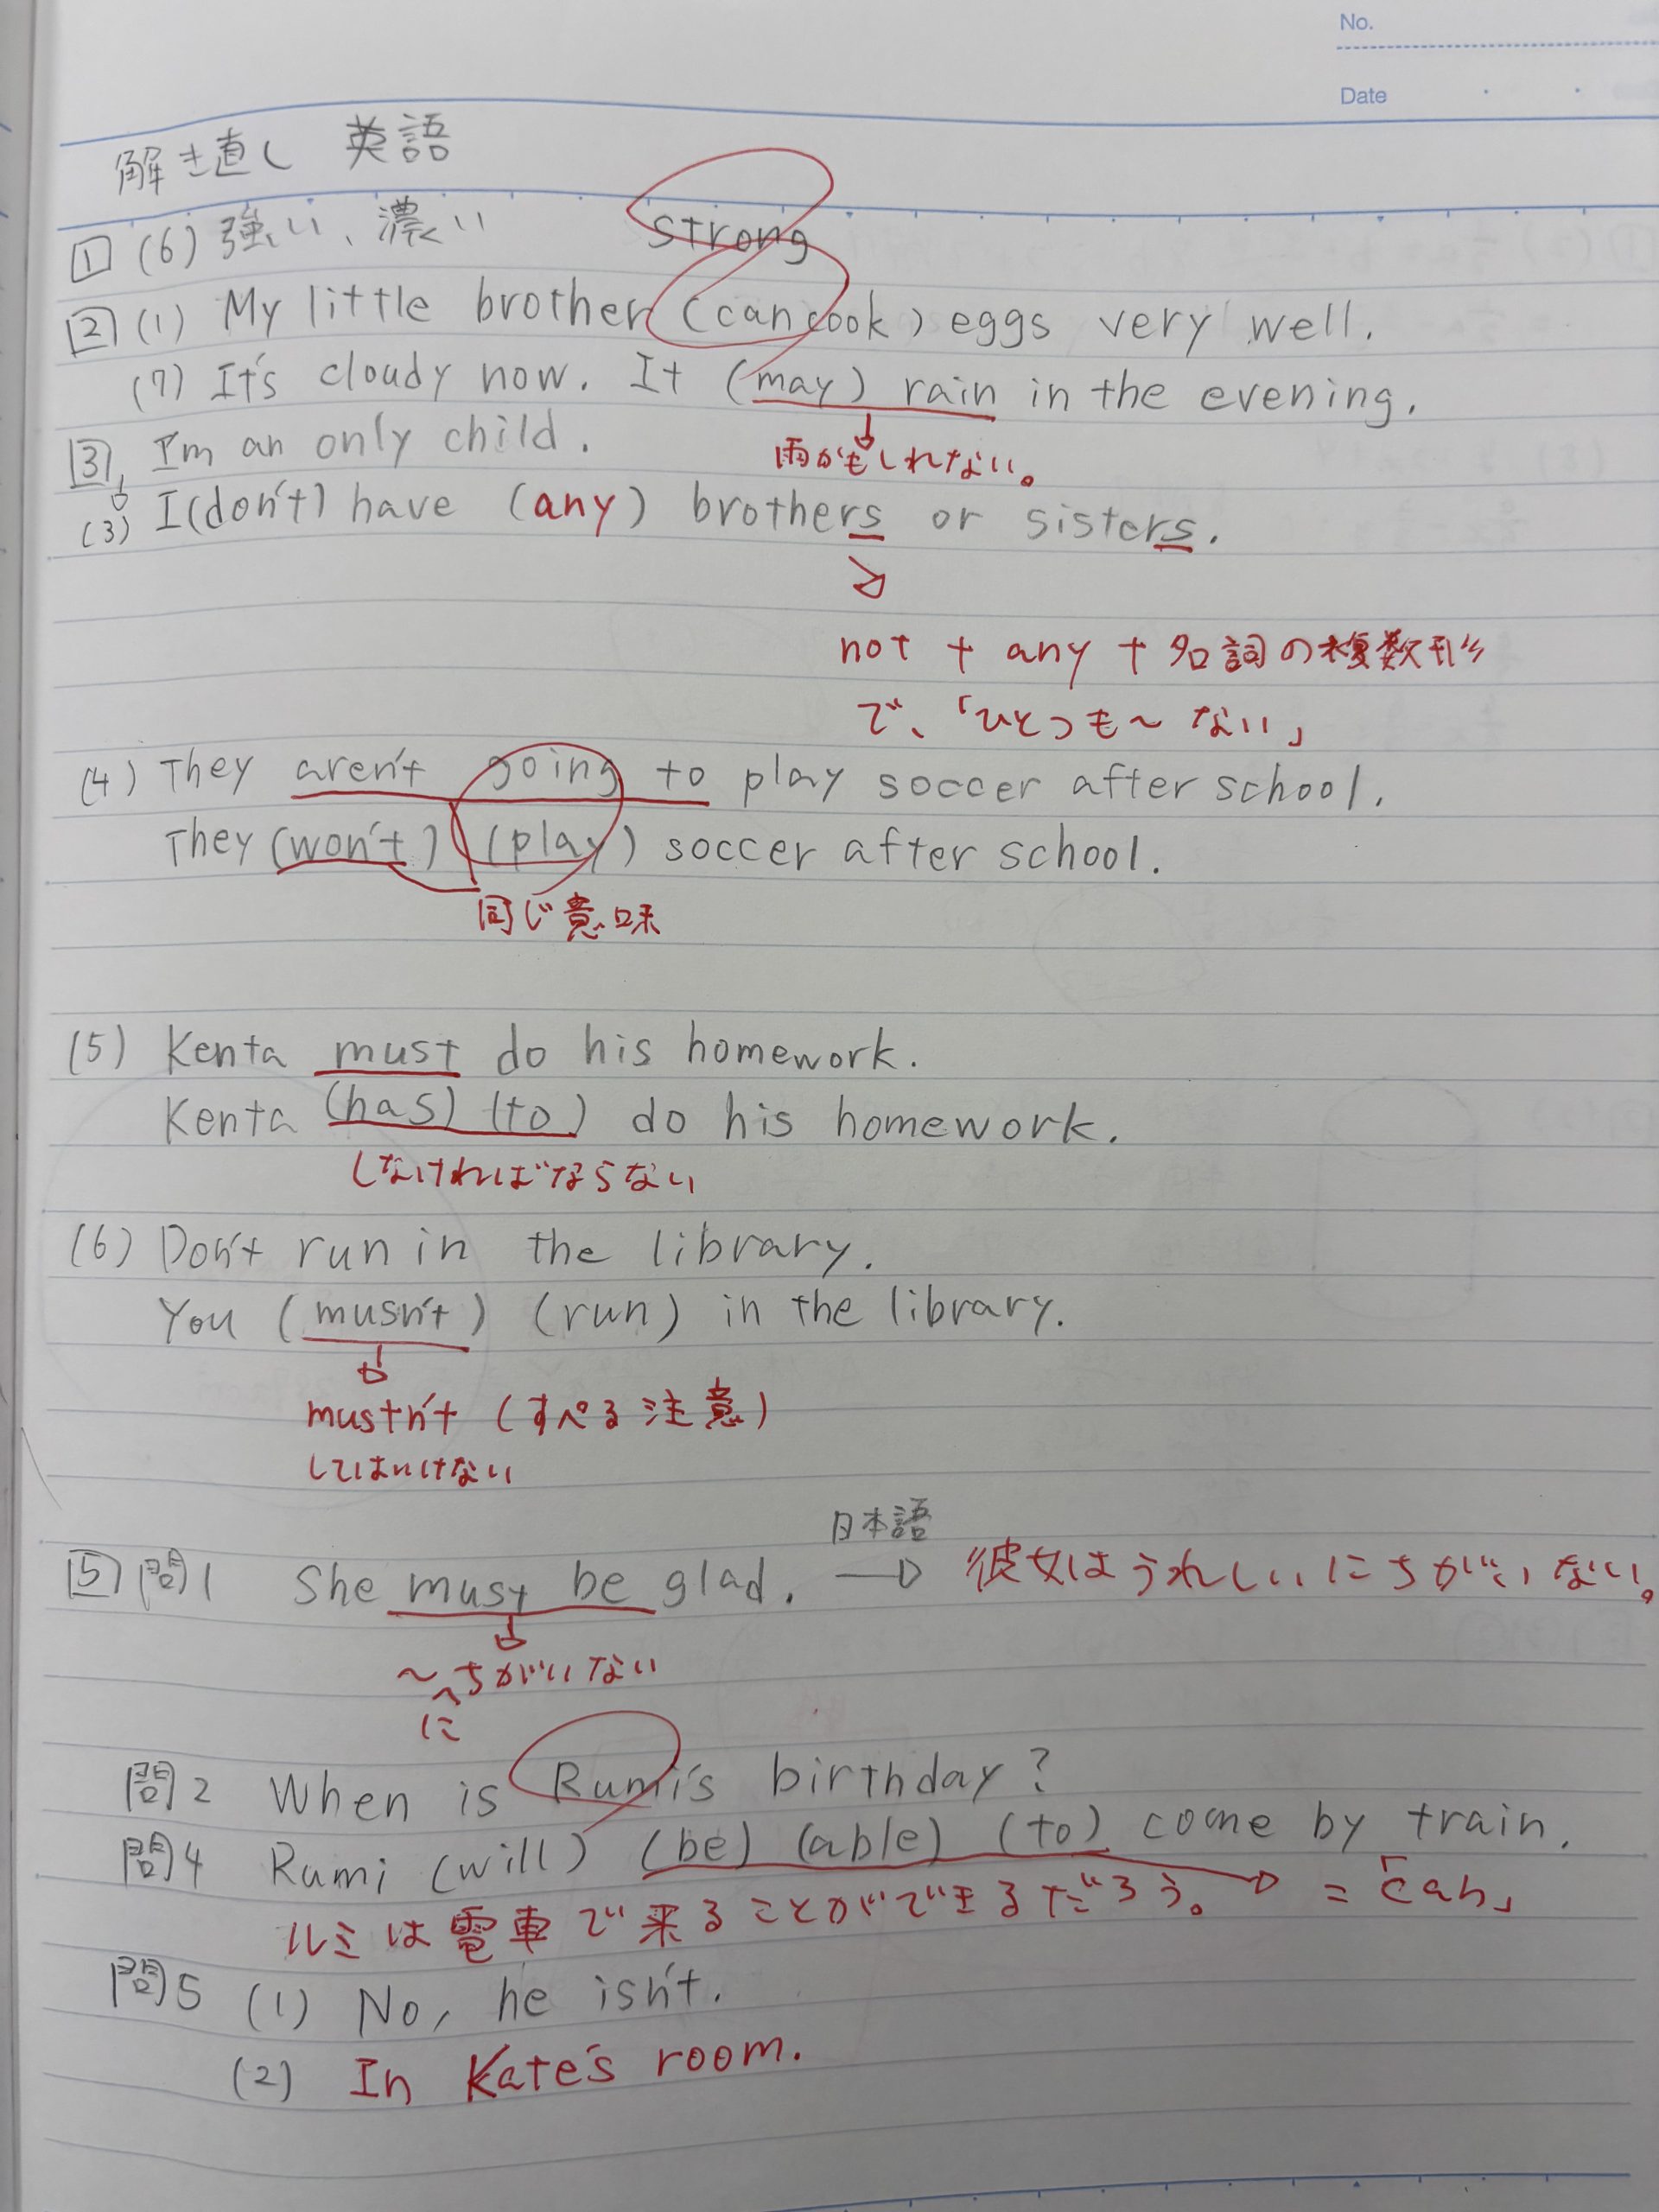 No.
Date
解き直し 英語
1 (6) 強い、濃い strong
2 (1) My little brother (can cook) eggs very well.
(7) It's cloudy now. It (may) rain in the evening.
雨かもしれない。
3 I'm an only child.
(3) I (don't) have (any) brothers or sisters.
not + any + 名詞の複数形
で、「ひとつも～ない」
(4) They aren't going to play soccer after school.
They (won't) (play) soccer after school.
同じ意味
(5) Kenta must do his homework.
Kenta (has) (to) do his homework.
しなければならない
(6) Don't run in the library.
You (musn't) (run) in the library.
mustn't (すぺる注意)
してはいけない
日本語
5 問1 She must be glad. → 彼女はうれしいにちがいない。
～ちがいない
に
問2 When is Rumi's birthday?
問4 Rumi (will) (be) (able) (to) come by train.
ルミは電車で来ることができるだろう。 → = 「can」
問5 (1) No, he isn't.
(2) In Kate's room.